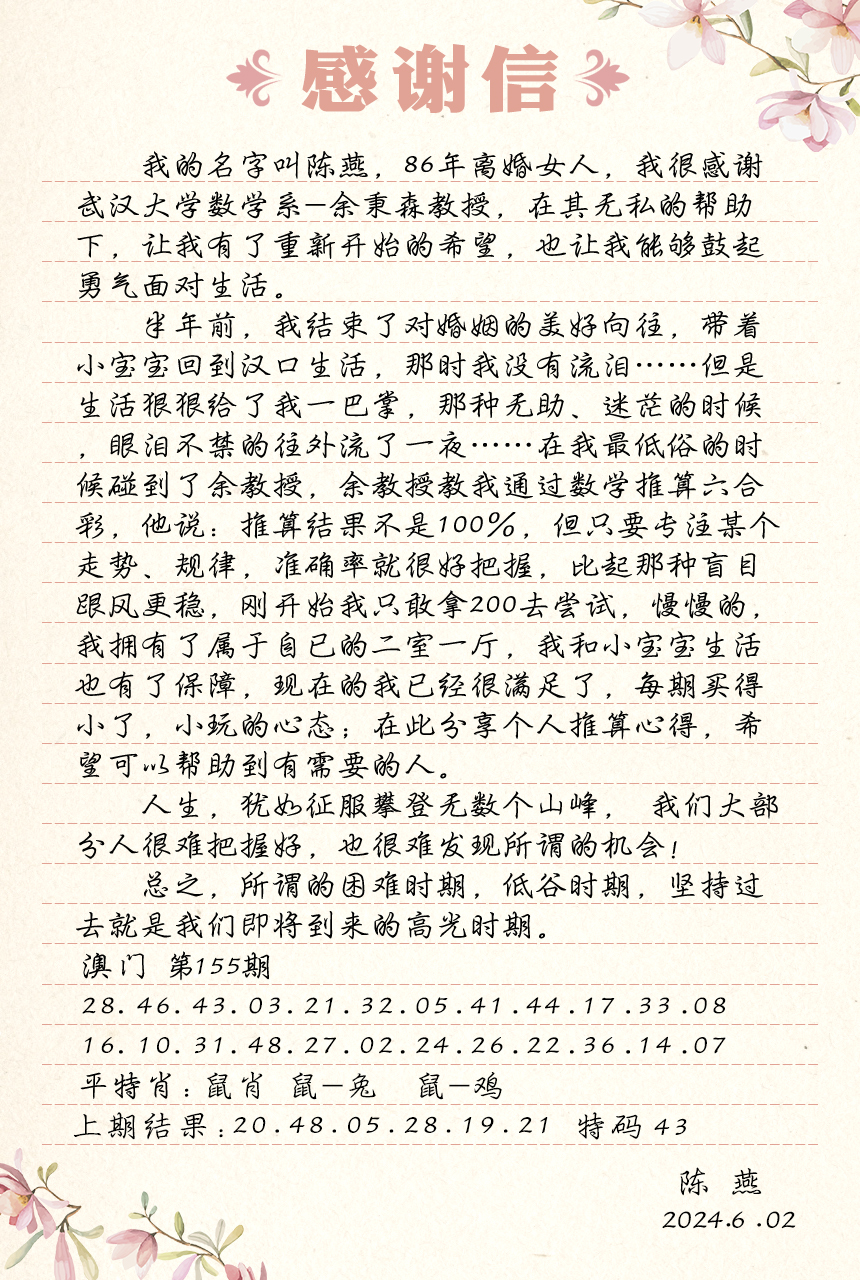 感谢信
我的名字叫陈燕，86年离婚女人，我很感谢
武汉大学数学系—余秉森教授，在其无私的帮助
下，让我有了重新开始的希望，也让我能够鼓起
勇气面对生活。
半年前，我结束了对婚姻的美好向往，带着
小宝宝回到汉口生活，那时我没有流泪……但是
生活狠狠给了我一巴掌，那种无助、迷茫的时候
，眼泪不禁的往外流了一夜……在我最低俗的时
候碰到了余教授，余教授教我通过数学推算六合
彩，他说：推算结果不是100%，但只要专注某个
走势、规律，准确率就很好把握，比起那种盲目
跟风更稳，刚开始我只敢拿200去尝试，慢慢的，
我拥有了属于自已的二室一厅，我和小宝宝生活
也有了保障，现在的我已经很满足了，每期买得
小了，小玩的心态；在此分享个人推算心得，希
望可以帮助到有需要的人。
人生，犹如征服攀登无数个山峰， 我们大部
分人很难把握好，也很难发现所谓的机会！
总之，所谓的困难时期，低谷时期，坚持过
去就是我们即将到来的高光时期。
澳门 第155期
28.46.43.03.21.32.05.41.44.17.33.08
16.10.31.48.27.02.24.26.22.36.14.07
平特肖：鼠肖 鼠—兔 鼠—鸡
上期结果：20.48.05.28.19.21 特码 43
陈 燕
2024.6.02